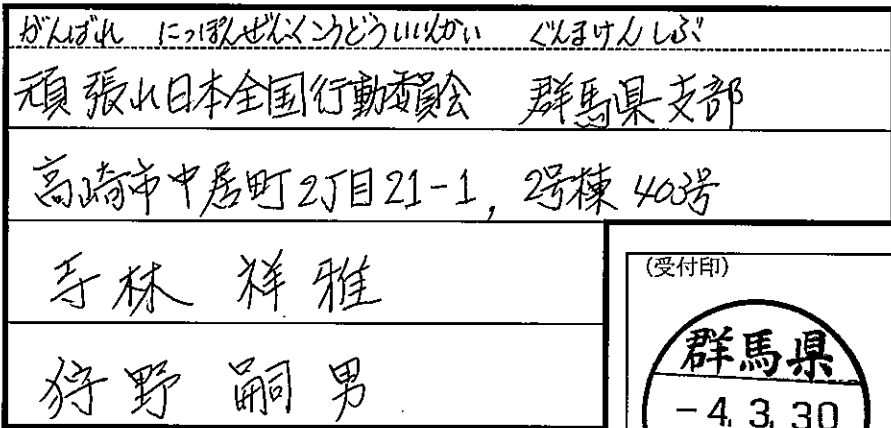 がんばれ にっぽんぜんこくこうどういいんかい ぐんまけんしぶ
頑張れ日本全国行動委員会 群馬県支部
高崎市中居町2丁目21-1, 2号棟 403号
寺林 祥雅
狩野 嗣男
(受付印)
群馬県
-4.3.30